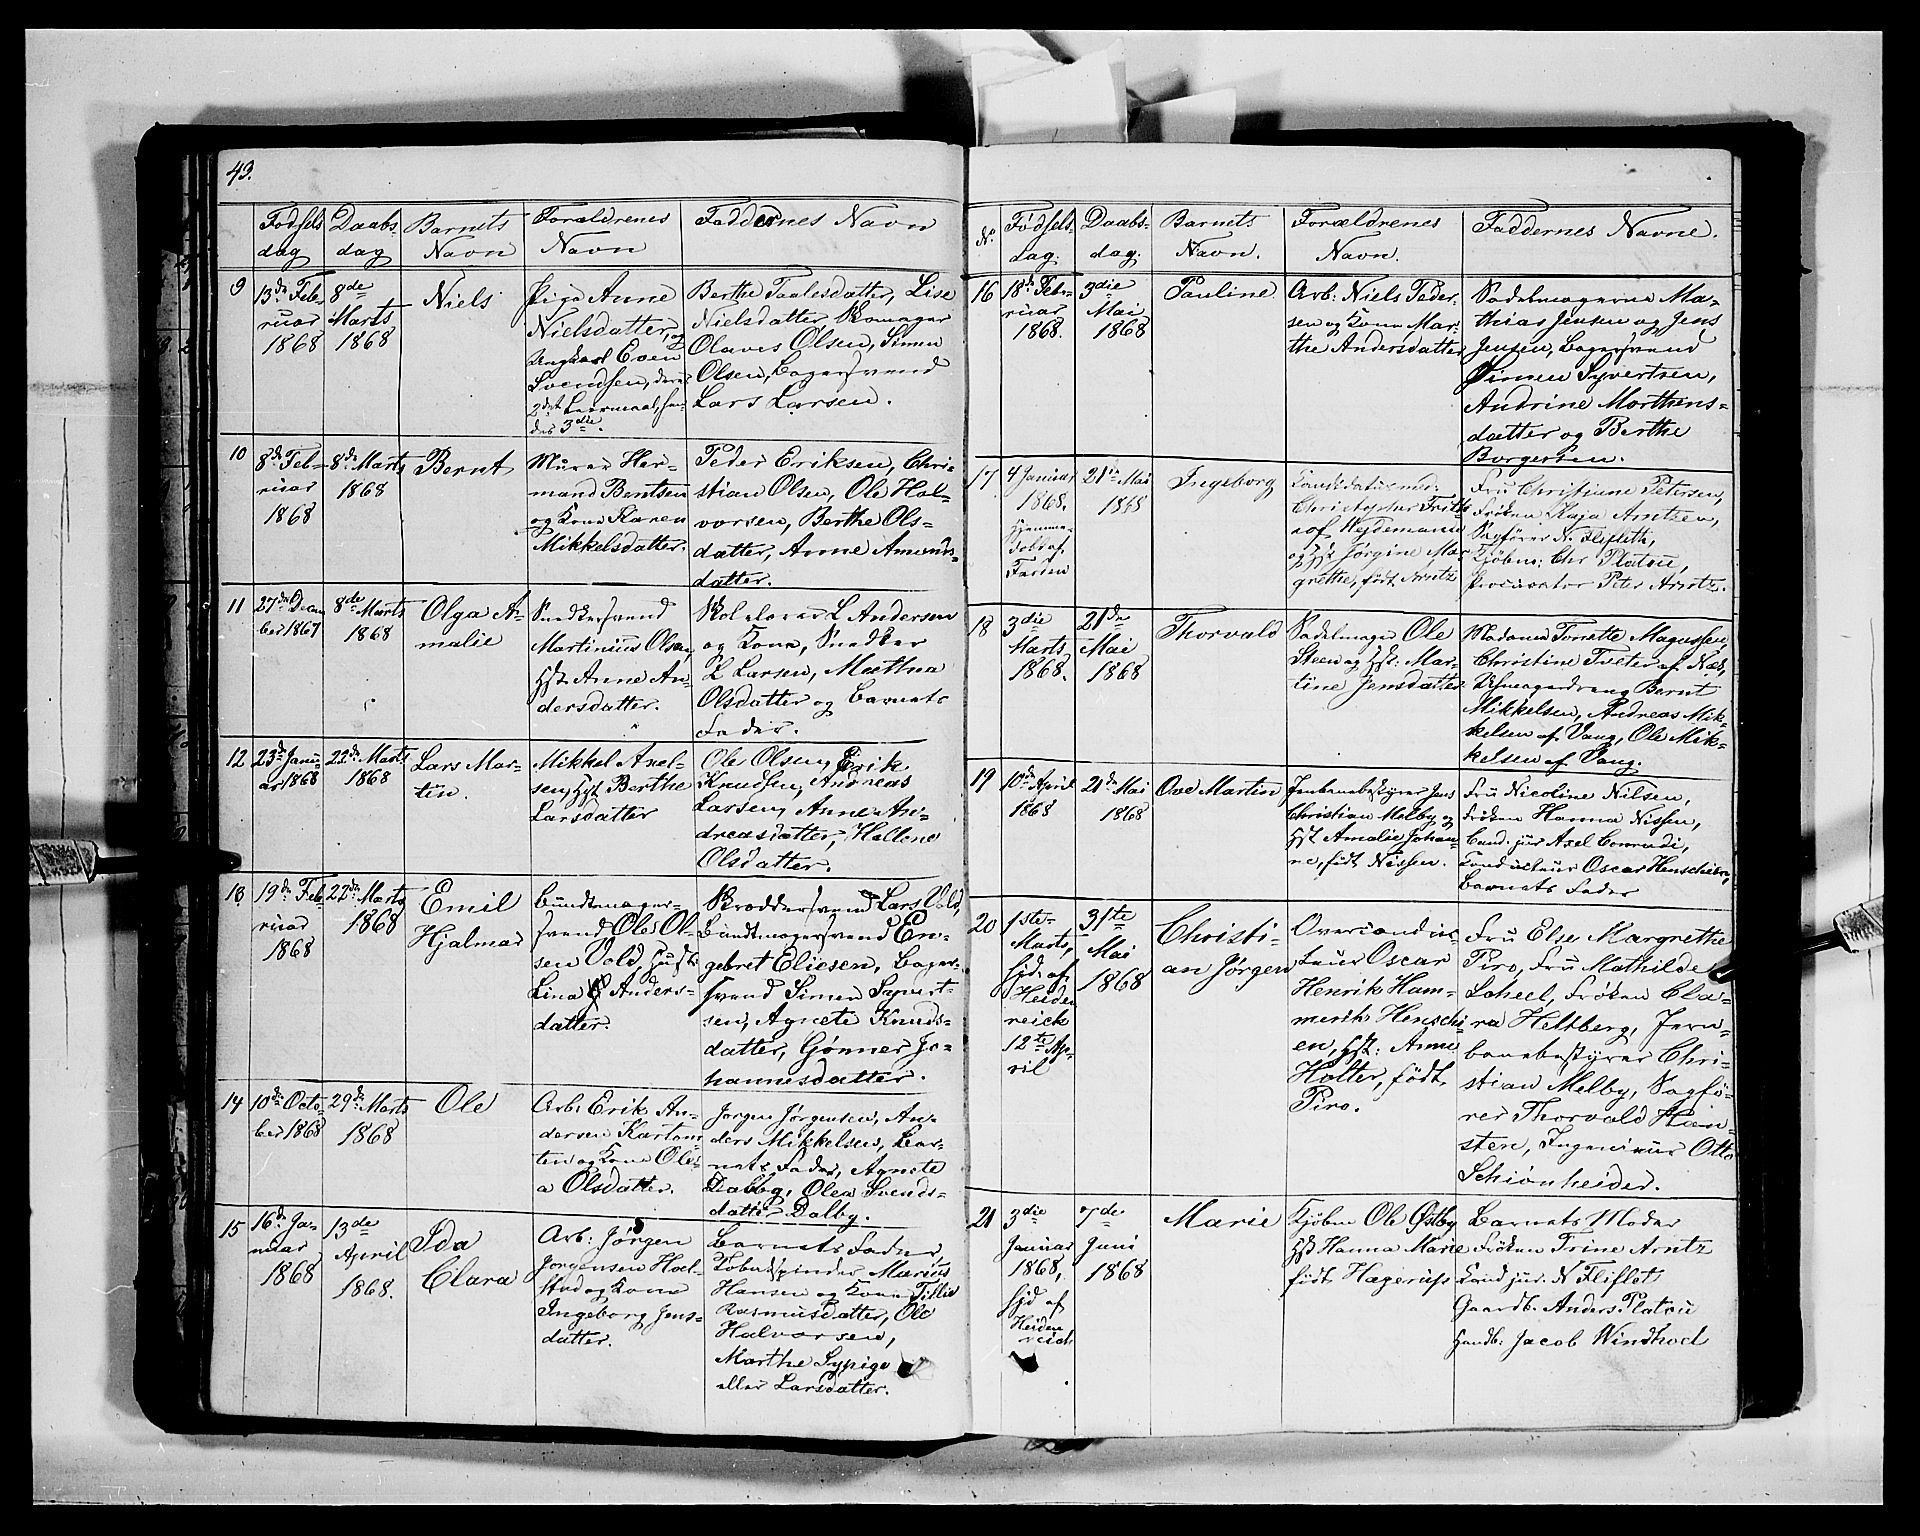 49.
Fødsels dag
Daabs dag
Barnets Navn
Forældrenes Navn
Faddernes Navn
9
13de Feb
ruar
1868
8de
Marts
1868
Niels
Pige Anne
Nielsdatter, og
Ungkarl Even
Svendsen, deres
2det Leiermaal, hen
des 3die.
Berthe Paalesdatter, Lise
Nielsdatter Skomager
Olaves Olsen, Simen
Olsen, Bagersvend
Lars Larsen.
10
8de Feb-
ruar
1868
8de Marts
1868
Bernt
Murer Her-
mand Bentsen
og Kone Karen
Mikkelsdatter.
Peder Eriksen, Chri-
stian Olsen, Ole Hal-
vorsen, Berthe Ols-
datter, Anne Amunds-
datter.
11
27de Decem
ber 1867
8de Marts
1868
Olga A-
malie
Snedkersvend
Martinius Olsen,
Hst. Anne An-
dersdatter.
Skolelærer L Andersen
og Kone, Snedker
L Larsen, Mathea
Olsdatter og Barnets
Fader.
12
23de Janu-
ar 1868
22de Marts
1868
Lars Mar-
tin.
Mikkel Axel-
sen, Hst Berthe
Larsdatter
Ole Olsen, Erik
Knudsen, Andreas
Larsen, Anne An-
dreasdatter, Hellene
Olsdatter.
13
19de Feb
ruar
1868
22de Marts
1868
Emil
Hjalmar
Bundtmager-
svend Ole Ol-
sen Vold Hust
Lina Anders-
datter.
Skreddersvend Lars Vold,
Bundtmagersvend En-
gebret Eliesen, Bager-
svend Simen Syvert-
sen, Agnete Knuds-
datter, Gønner Jo-
hannesdatter.
14
10de Octo-
ber 1868
29de Marts
1868
Ole
Arb: Erik An-
dersen
og Kone Ole-
a Olsdatter.
Jørgen Jørgensen, An-
ders Mikkelsen, Bar-
nets Fader, Agnete
Dalby, Olea Svends-
datter Dalby.
15
16de Ja-
nuar
1868
13de
April
1868.
Ida
Clara
Arb: Jørgen
Jørgensen Hol-
stad og Kone
Ingeborg Jens-
datter.
Barnets Fader,
Tobakspinder Marius
Hansen og Kone Tillie
Rasmusdatter, Ole
Halvorsen,
Marthe Sypige
eller Larsdatter.
No.
Fødsels-
dag.
Daabs-
dag.
Barnets
Navn.
Forældrenes
Navn.
Faddernes Navne.
16
18de Feb-
ruar
1868.
3die
Mai
1868
Pauline
Arb: Niels Peder-
sen og Kone Mar-
the Andersdatter
Sadelmagerne Ma-
thias Jensen og Jens
Jensen, Bagersvend
Simen Syvertsen,
Andrine Morthens-
datter og Berthe
Borgersen.
17
4 Januar
1868.
Hjemme-
døbt af
Faderen
21de Mai
1868
Ingeborg
Candidatus med.
Christopher Frith-
iof Hejdemann
og Hst Jørgine Mar-
grethe, født Arntz
Fru Christiane Petersen,
Frøken Kaja Arntzen,
Sagfører N. Fliflet,
Kjøbm: Chr Platou,
Procurator Peter Arntz.
18
3die
Marts
1868.
21de
Mai
1868
Thorvald
Sadelmager Ole
Steen og Hst: Mar-
tine Jensdatter
Madame Tonette Magnussen,
Christine Tveter af Næs,
Bernt
Mikkelsen, Andreas Mik-
kelsen af Vang, Ole Mik-
kelsen af Vang.
19
10de April
1868
21de Mai
1868
Ove Martin
Jernbanebestyrer Jens
Christian Melby og
Hst Amalie Johan-
ne, født Nissen.
Fru Nicoline Nilsen,
Frøken Hanna Nissen,
Cand. jur Axel Conradi,
Conducteur Oscar Henschien,
Barnets Fader
20
1ste
Marts,
hjd. af
Heiden
reich
12te Ap-
ril
31te
Mai
1868
Christi-
an Jørgen
Overconduc-
teur Oscar
Henrik Ham-
merik Henschi-
en, Hst: Anne
Holter, født
Piro.
Fru Else Margrethe
Piro, Fru Mathilde
Scheel, Frøken Cla-
ra Heltberg, Jern-
banebestyrer Chri-
stian Melby, Sagfø-
rer Thorvald Han-
steen, Ingenieur Otto
Schiønheider.
21
3die
Januar
1868,
hjd af
Heiden
reich
7de
Juni
1868
Marie
Kjøbm Ole Østby
Hst Hanna Marie
født Hagerup
Barnets Moder
Frøken Trine Arntz
Cand jur. N Fliflet
Gaardb. Anders Platou
Handb: Jacob Windhod